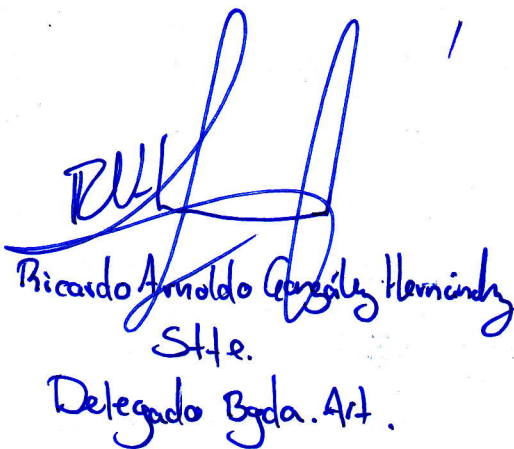 Ricardo Arnoldo González Hernández
Stte.
Delegado Bgda. Art.